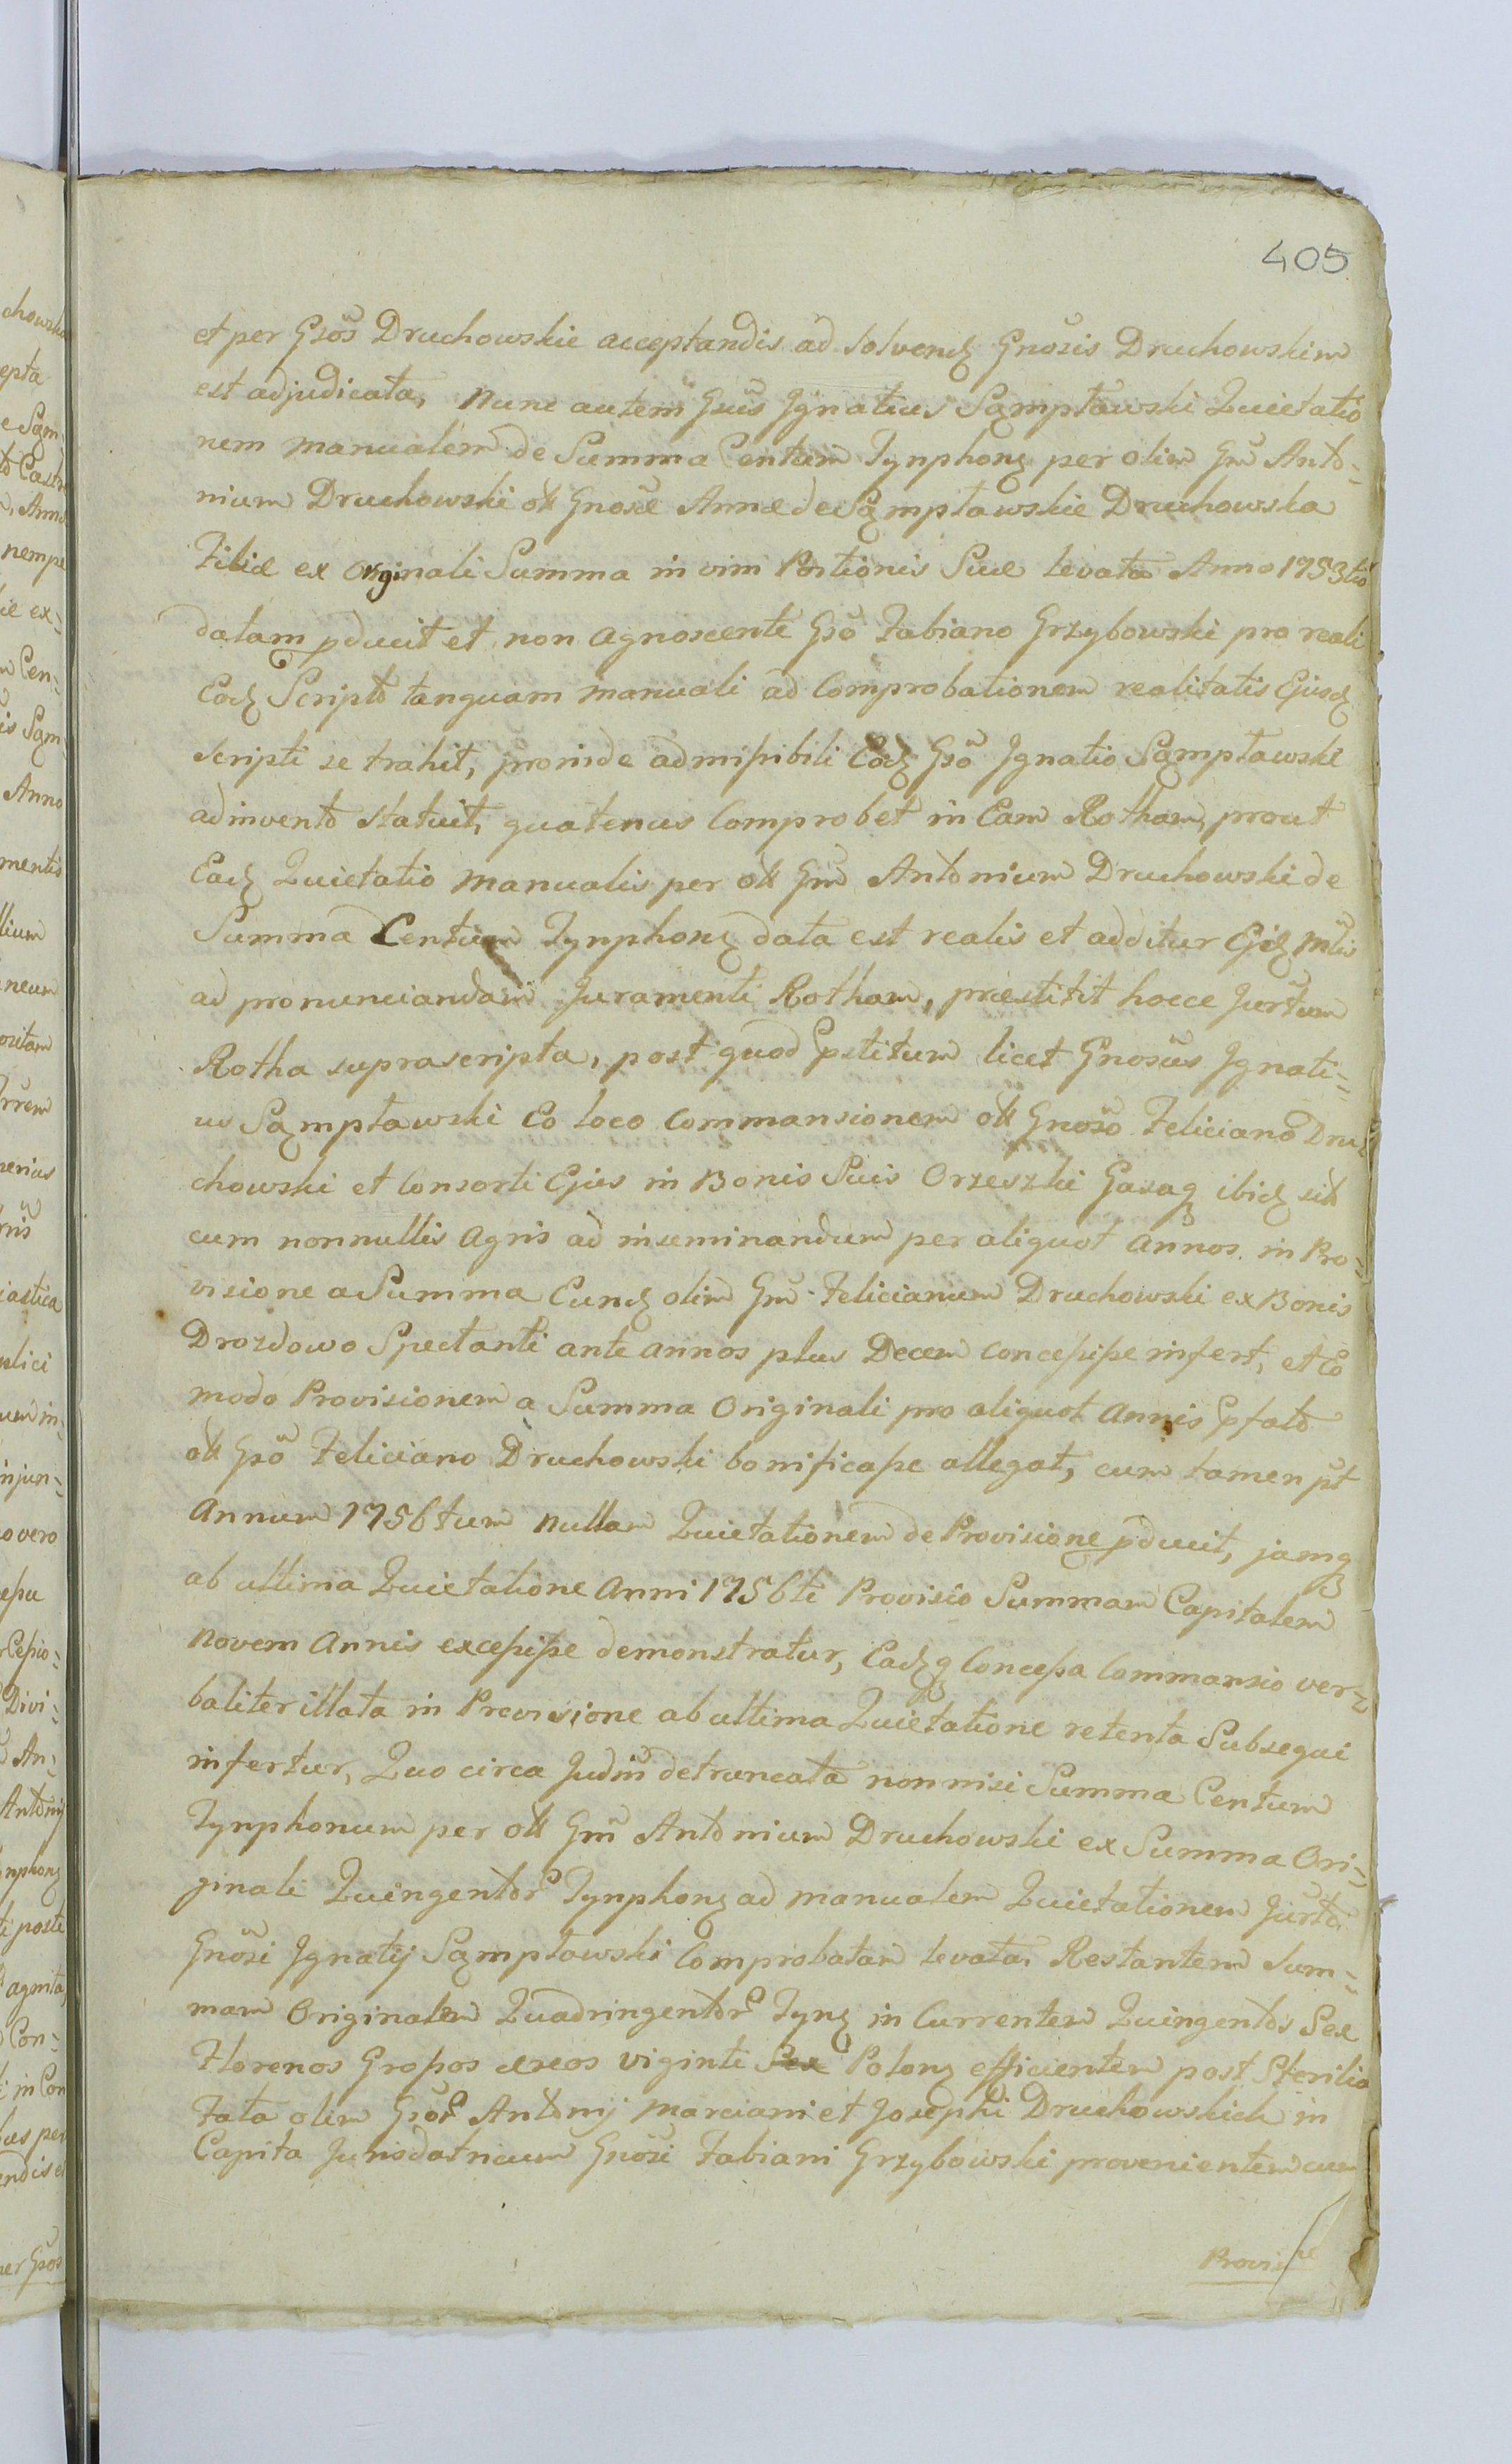 405
et per Gsos Druchowskie acceptandis ad solvend Gnosis Druchowskim
est adjudicata, Nunc autem Gnus Ignatius Sąmpławski Quietatio
nem Manualem de Summa Centum Tynphonꝫ per olim Gnm Anto-
nium Druchowski olt Gnosæ Annæ de Sąmpławskie Druchowska
Filiæ ex Originali Summa in vim Portionis Suæ levata Anno 1753tio
datam pducit et non agnoscente Gso Fabiano Grzybowski pro reali
Eodꝫ Scripto tanquam manuali ad Comprobationem realitatis Ejusdꝫ
Scripti se trahit, proinde admissibili Eodꝫ Gso Ignatio Sąmpławski
adinvento statuit, quatenus Comprobet in Eam Rotham, prout
Eadꝫ Quietatio Manualis per olt Gnm Antonium Druchowski de
Summa Centum Tynphonꝫ data est realis et additur Ejdꝫ Mtis
ad pronunciandam Juramenti Rotham, præstitit hocce Jurtum
Rotha suprascripta, post quod Pstitum licet Gnosus Ignati=
us Sąmpławski Eo loco Commansionem olt Gnoso Feliciano Dru=
chowski et Consorti Ejus in Bonis Suis Orzeszki Gasaą ibidꝫ sit
cum nonnullis Agris ad inseminandum per aliquot Annos in Pro=
visione a Summa Eundꝫ olim Gnm Felicianum Druchowski ex Bonis
Drozdowo Spectanti ante annos plus Decem concessisse infert, et Eo
modo Provisionem a Summa Originali pro aliquot Annis Pfato
olt Gso Feliciano Druchowski bonificasse allegat, cum tamen pt
Annum 1756tum Nullam Quietationem de Provisione pducit, jamq
ab ultima Quietatione Anni 1756ti Provisio Summam Capitalem
Novem Annis excessisse demonstratur, Eadꝫq Concessa Commansio ver=
baliter illata in Provisione ab ultima Quietatione retenta Subsequi
infertur, Quo circa Judm detruncata nonnisi Summa Centum
Tynphonum per olt Gnm Antonium Druchowski ex Summa Ori=
ginali Quingentor Tynphonꝫ ad Manualem Quietationem Jurto
Gnosi Ignatij Sąmpławski Comprobatam levata. Restantem Sum=
mam Originalem Quadringentor Tynꝫ in Currentem Quingentos Sex
Florenos Grossos æreos viginti Sex Polonꝫ efficientem post Sterilia
Fata olim Gsor Antonij Marciani et Josephi Druchowskich in
Capita Jurisdatricum Gnosi Fabiani Grzybowski provenientem cum